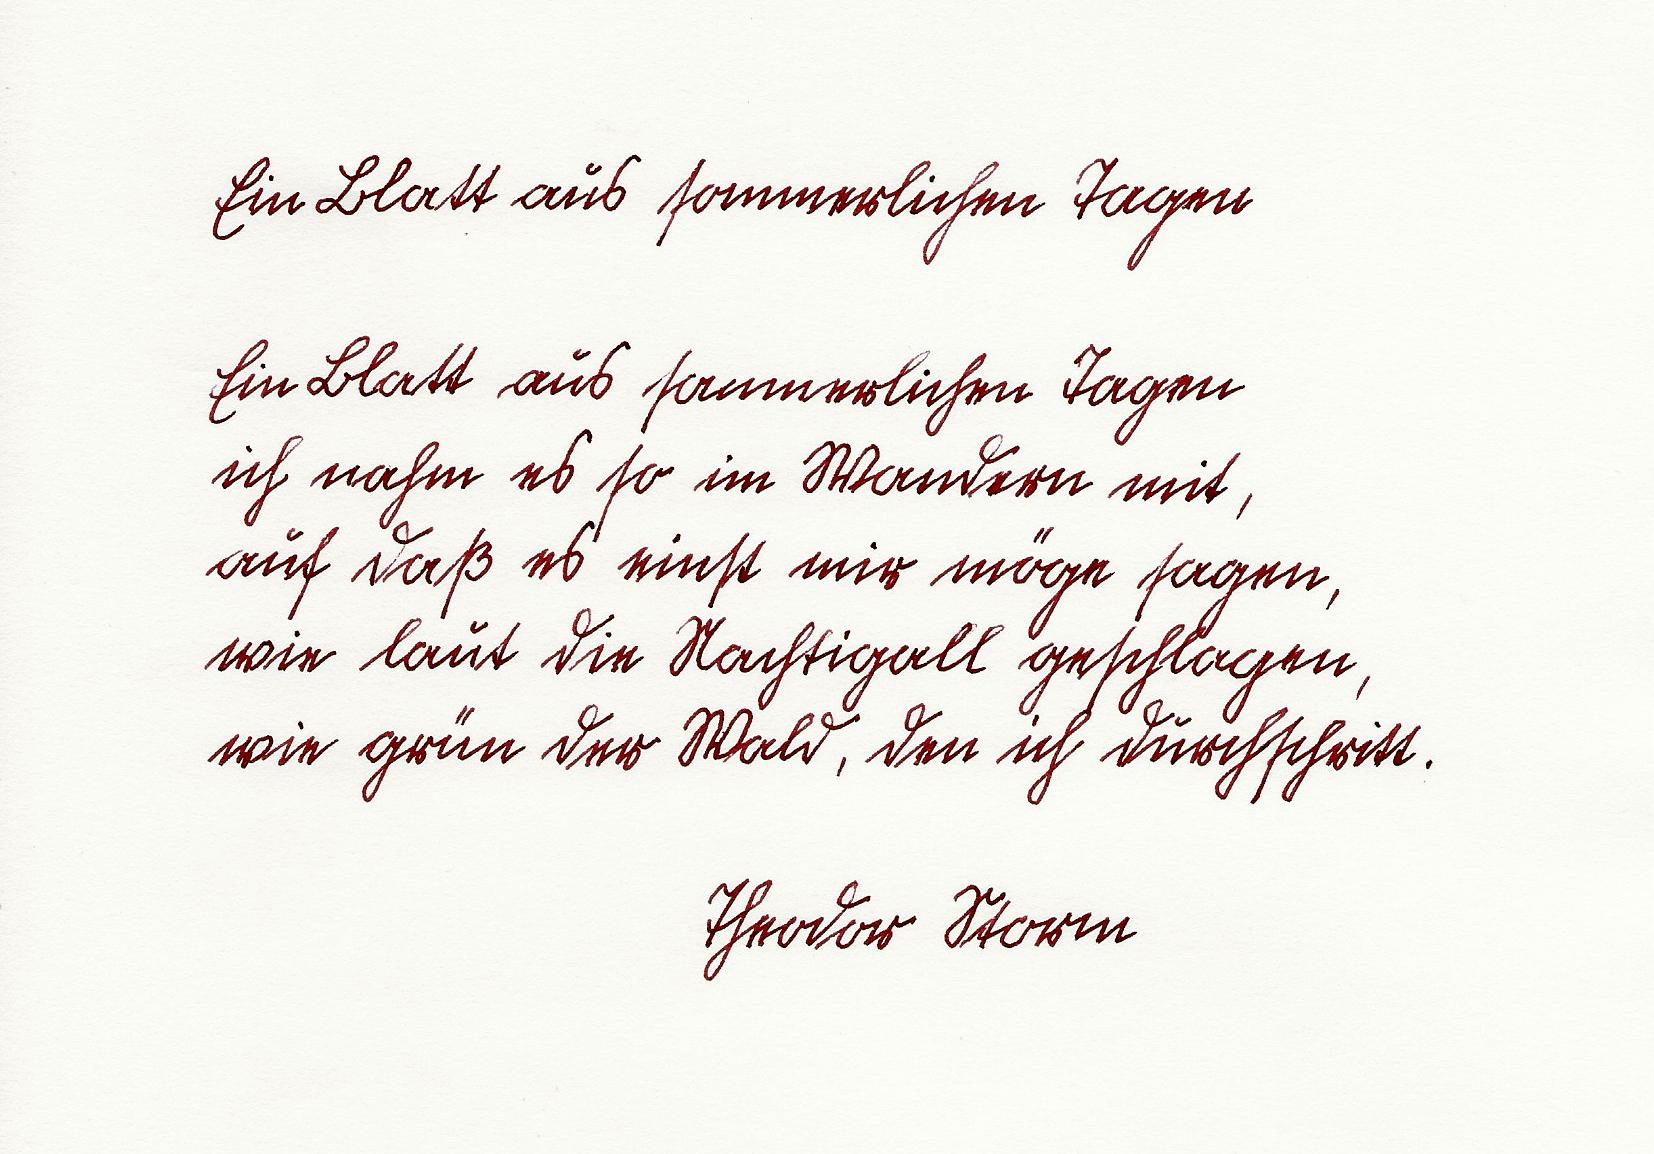 Ein Blatt aus sommerlichen Tagen
Ein Blatt aus sommerlichen Tagen
ich nahm es so im Wandern mit,
auf daß es einst mir möge sagen,
wie laut die Nachtigall geschlagen,
wie grün der Wald, den ich durchschritt.
Theodor Storm